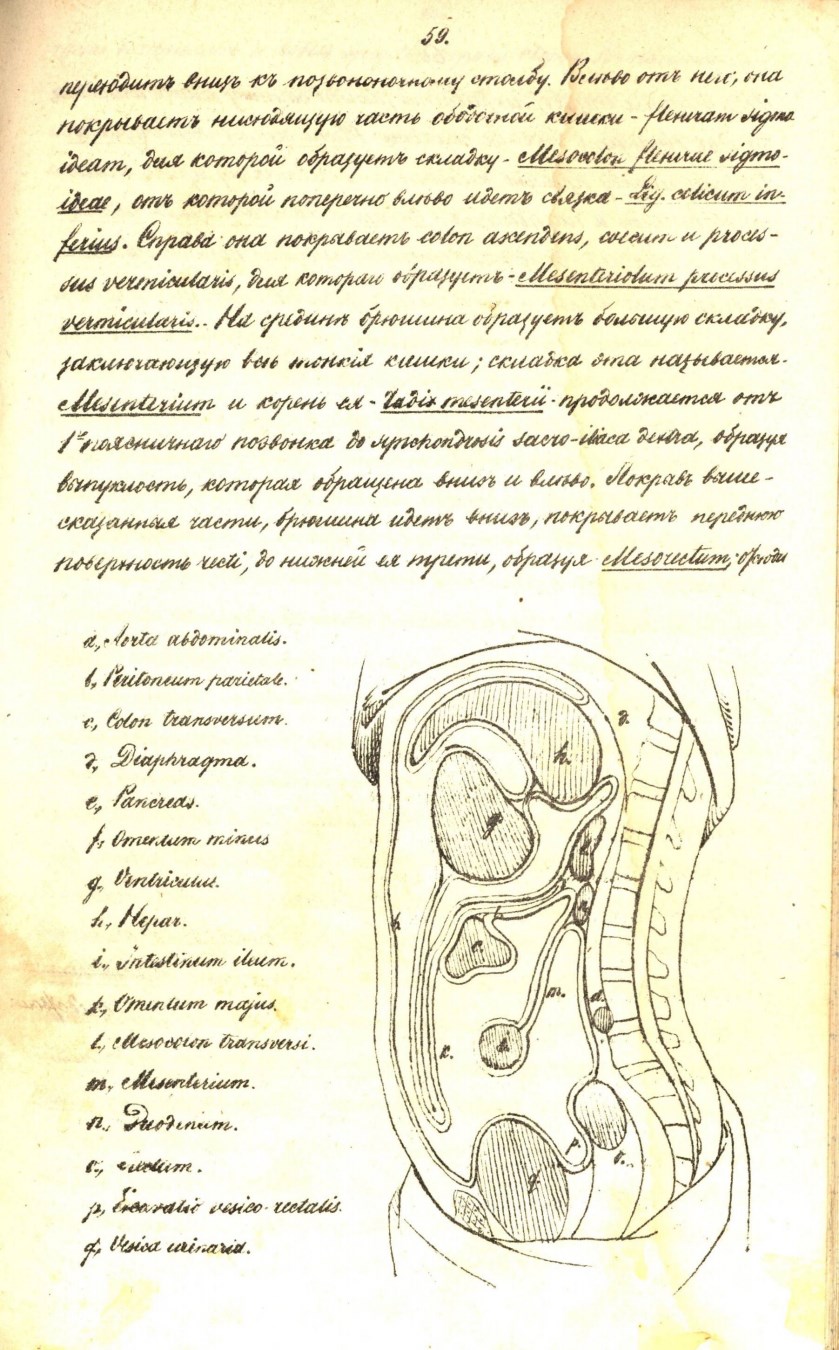 59.
переходитъ внизъ къ позвоночному столбу. Влѣво отъ нея, она
покрываетъ нисходящую часть ободочной кишки - flexuram sigmo
ideam, для которой образуетъ складку - Mesocolon flexurae sigmo-
ideae, отъ которой поперечно влѣво идетъ связка - Lig. colicum in-
ferius. Справа она покрываетъ colon ascendens, coecum и proces-
sus vermicularis, для котораго образуетъ - Mesenteriolum processus
vermicularis. На срединѣ брюшина образуетъ большую складку,
заключающую всѣ тонкія кишки; складка эта называется -
Mesenterium и корень ея - Radix mesenterii - продолжается отъ
1го поясничнаго позвонка до synchondrosis sacro-iliaca dextra, образуя
выпуклость, которая обращена внизъ и влѣво. Покрывъ выше-
сказанныя части, брюшина идетъ внизъ, покрываетъ переднюю
поверхность recti, до нижней ея трети, образуя Mesorectum;
a, Aorta abdominalis.
b, Peritoneum parietale.
c, Colon transversum.
d, Diaphragma.
e, Pancreas.
f, Omentum minus
g, Ventriculus.
h, Hepar.
i, Intestinum ilium.
k, Omentum majus.
l, Mesocolon transversi.
m, Mesenterium.
n, Duodenum.
o, rectum.
p, Excavatio vesico-rectalis.
q, Vesica urinaria.
d.
h.
g.
n.
b.
l.
c.
m.
a.
k.
p.
q.